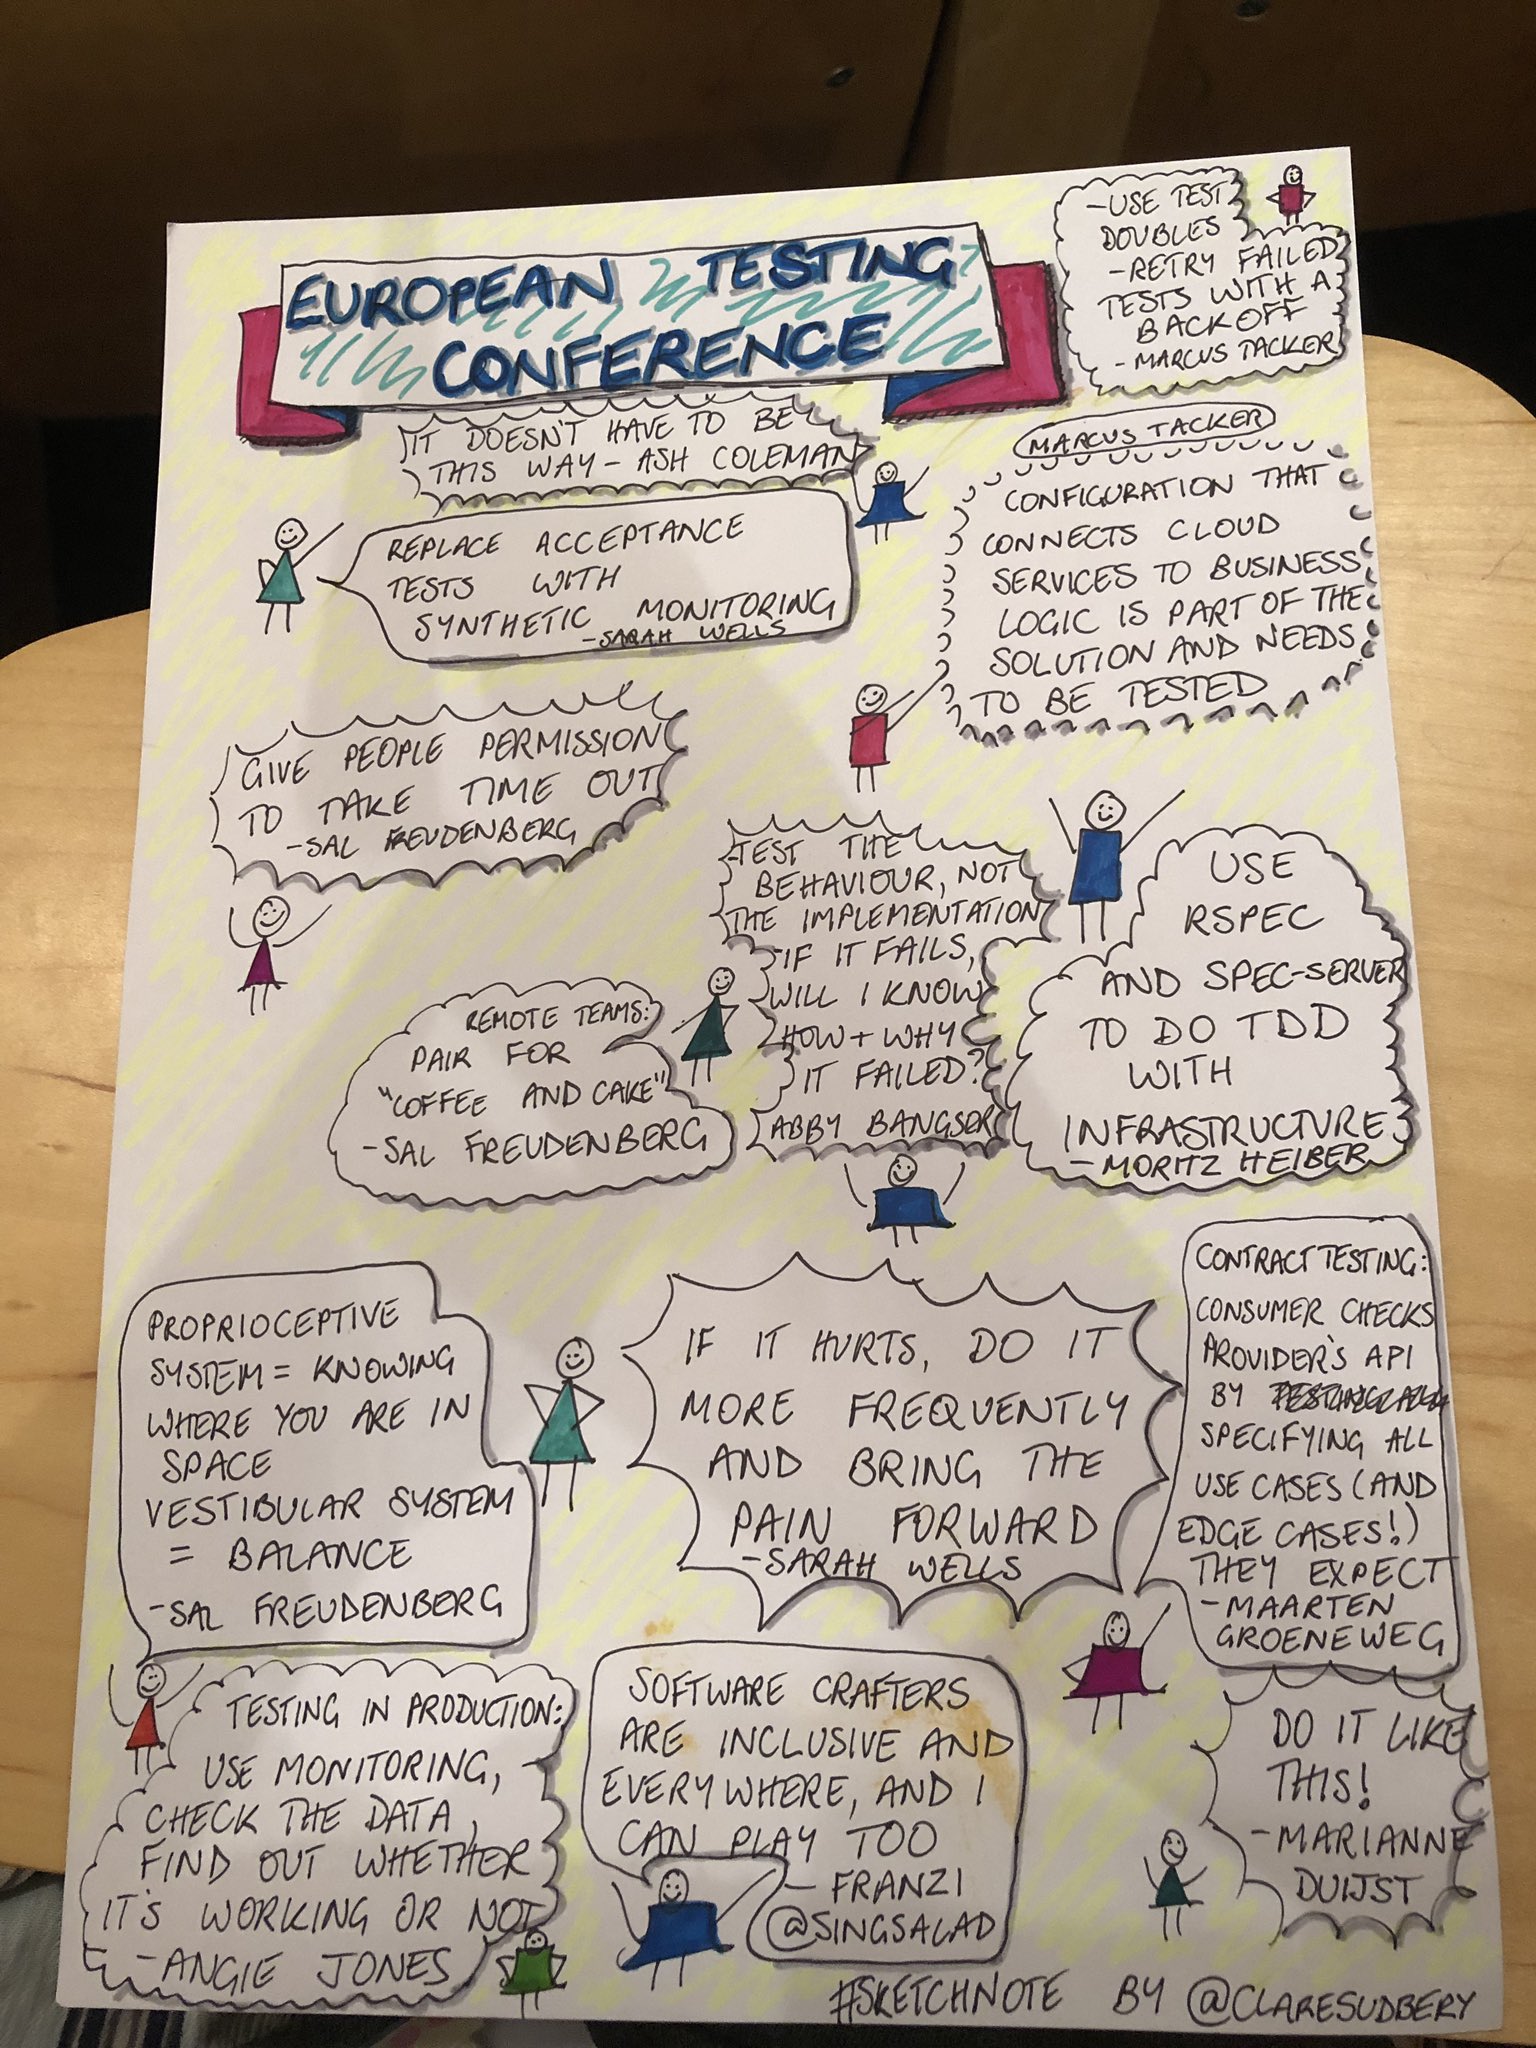 EUROPEAN TESTING
CONFERENCE
-USE TEST
DOUBLES
-RETRY FAILED
TESTS WITH A
BACKOFF
-MARCUS TACKER
IT DOESN'T HAVE TO BE
THIS WAY - ASH COLEMAN
MARCUS TACKER
CONFIGURATION THAT
CONNECTS CLOUD
SERVICES TO BUSINESS
LOGIC IS PART OF THE
SOLUTION AND NEEDS
TO BE TESTED
REPLACE ACCEPTANCE
TESTS WITH
SYNTHETIC MONITORING
-SARAH WELLS
GIVE PEOPLE PERMISSION
TO TAKE TIME OUT
-SAL FREUDENBERG
-TEST THE
BEHAVIOUR, NOT
THE IMPLEMENTATION
-IF IT FAILS,
WILL I KNOW
HOW + WHY
IT FAILED?
ABBY BANGSER
USE
RSPEC
AND SPEC-SERVER
TO DO TDD
WITH
INFRASTRUCTURE
-MORITZ HEIBER
REMOTE TEAMS:
PAIR FOR
"COFFEE AND CAKE"
-SAL FREUDENBERG
PROPRIOCEPTIVE
SYSTEM = KNOWING
WHERE YOU ARE IN
SPACE
VESTIBULAR SYSTEM
= BALANCE
-SAL FREUDENBERG
IF IT HURTS, DO IT
MORE FREQUENTLY
AND BRING THE
PAIN FORWARD
-SARAH WELLS
CONTRACT TESTING:
CONSUMER CHECKS
PROVIDER'S API
BY
SPECIFYING ALL
USE CASES (AND
EDGE CASES!)
THEY EXPECT
-MAARTEN
GROENEWEG
TESTING IN PRODUCTION:
USE MONITORING,
CHECK THE DATA,
FIND OUT WHETHER
IT'S WORKING OR NOT
-ANGIE JONES
SOFTWARE CRAFTERS
ARE INCLUSIVE AND
EVERYWHERE, AND I
CAN PLAY TOO
- FRANZI
@SINGSALAD
DO IT LIKE
THIS!
-MARIANNE
DUIJST
#SKETCHNOTE BY @CLARESUDBERY